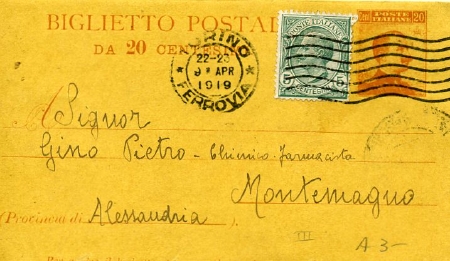 BIGLIETTO POSTAL
DA 20 CENTESI
TORINO
22-23
APR
1919
FERROVIA
POSTE ITALIANE
5 5
CENTESIMI
20 20
POSTE
ITALIANE
A Signor
Gino Pietro - Chimico-Farmacista
Montemagno
(Provincia di Alessandria).
III A 3-